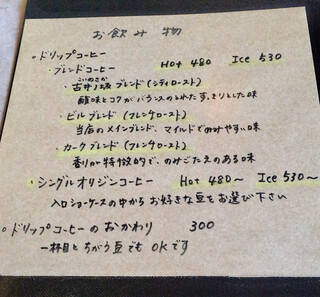 お飲み物
◦ドリップコーヒー
・ブレンドコーヒー Hot 480 Ice 530
・古井ノ坂ブレンド(シティロースト)
酸味とコクがバランスのとれたすっきりとした味
・ビルブレンド(フレンチロースト)
当店のメインブレンド、マイルドでのみやすい味
・カークブレンド(フレンチロースト)
香りが特徴的で、のみごたえのある味
・シングルオリジンコーヒー Hot 480〜 Ice 530〜
入口ショーケースの中からお好きな豆をお選び下さい
◦ドリップコーヒーのおかわり 300
一杯目とちがう豆でもOKです